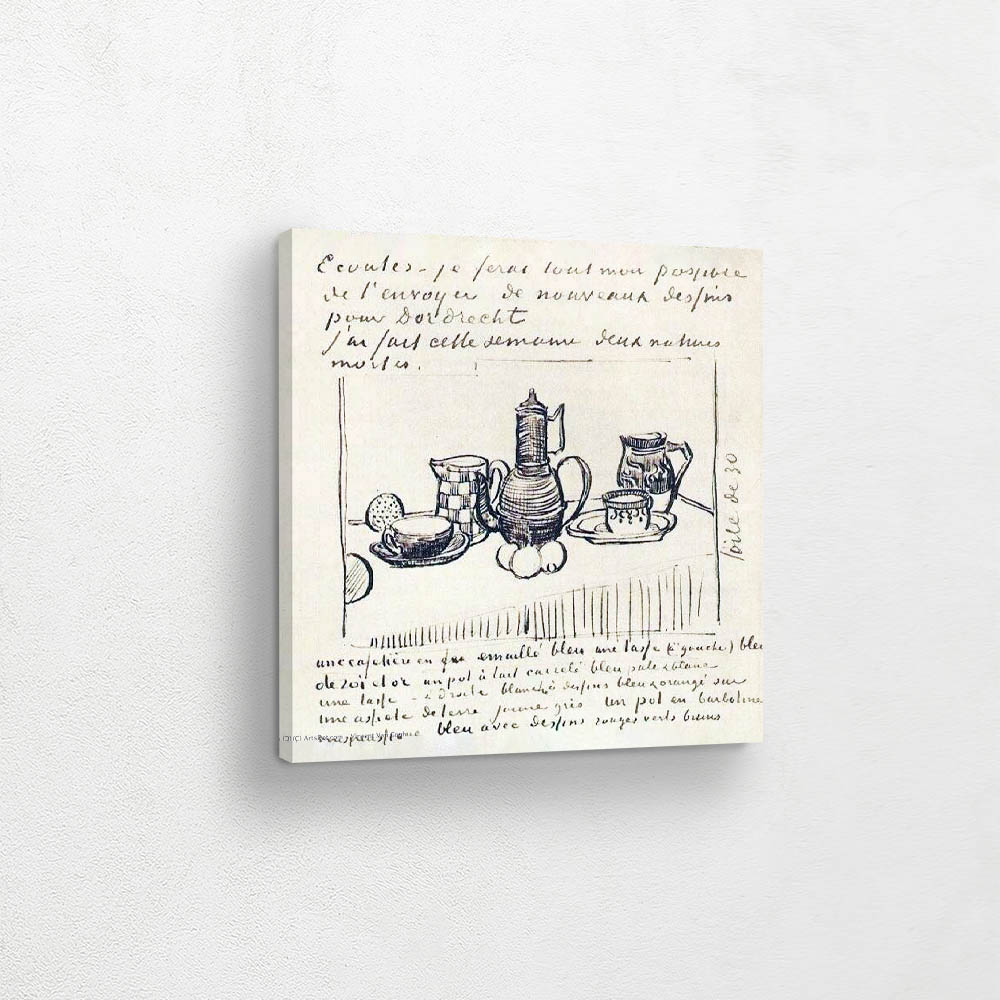 Ecoutes - je ferai tout mon possible
de t'envoyer de nouveaux dessins
pour Dordrecht
j'ai fait cette semaine deux natures
mortes.
Toile de 30
une cafetière en emaillé bleu une tasse (à gauche) bleu
de roi et or un pot à lait carrelé bleu pale & blanc
une tasse - à droite blanche à dessins bleu & orangé sur
une assiete de terre jaune gris un pot en barbotine
bleu avec dessins rouges verts bruns